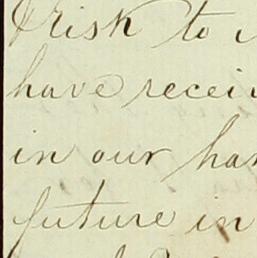 risk to
have recei
in our han
future in